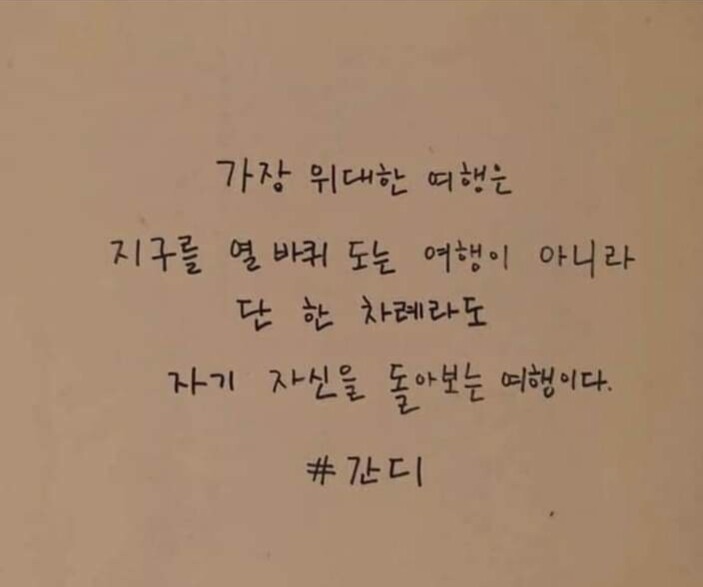 가장 위대한 여행은
지구를 열 바퀴 도는 여행이 아니라
단 한 차례라도
자기 자신을 돌아보는 여행이다.
#간디